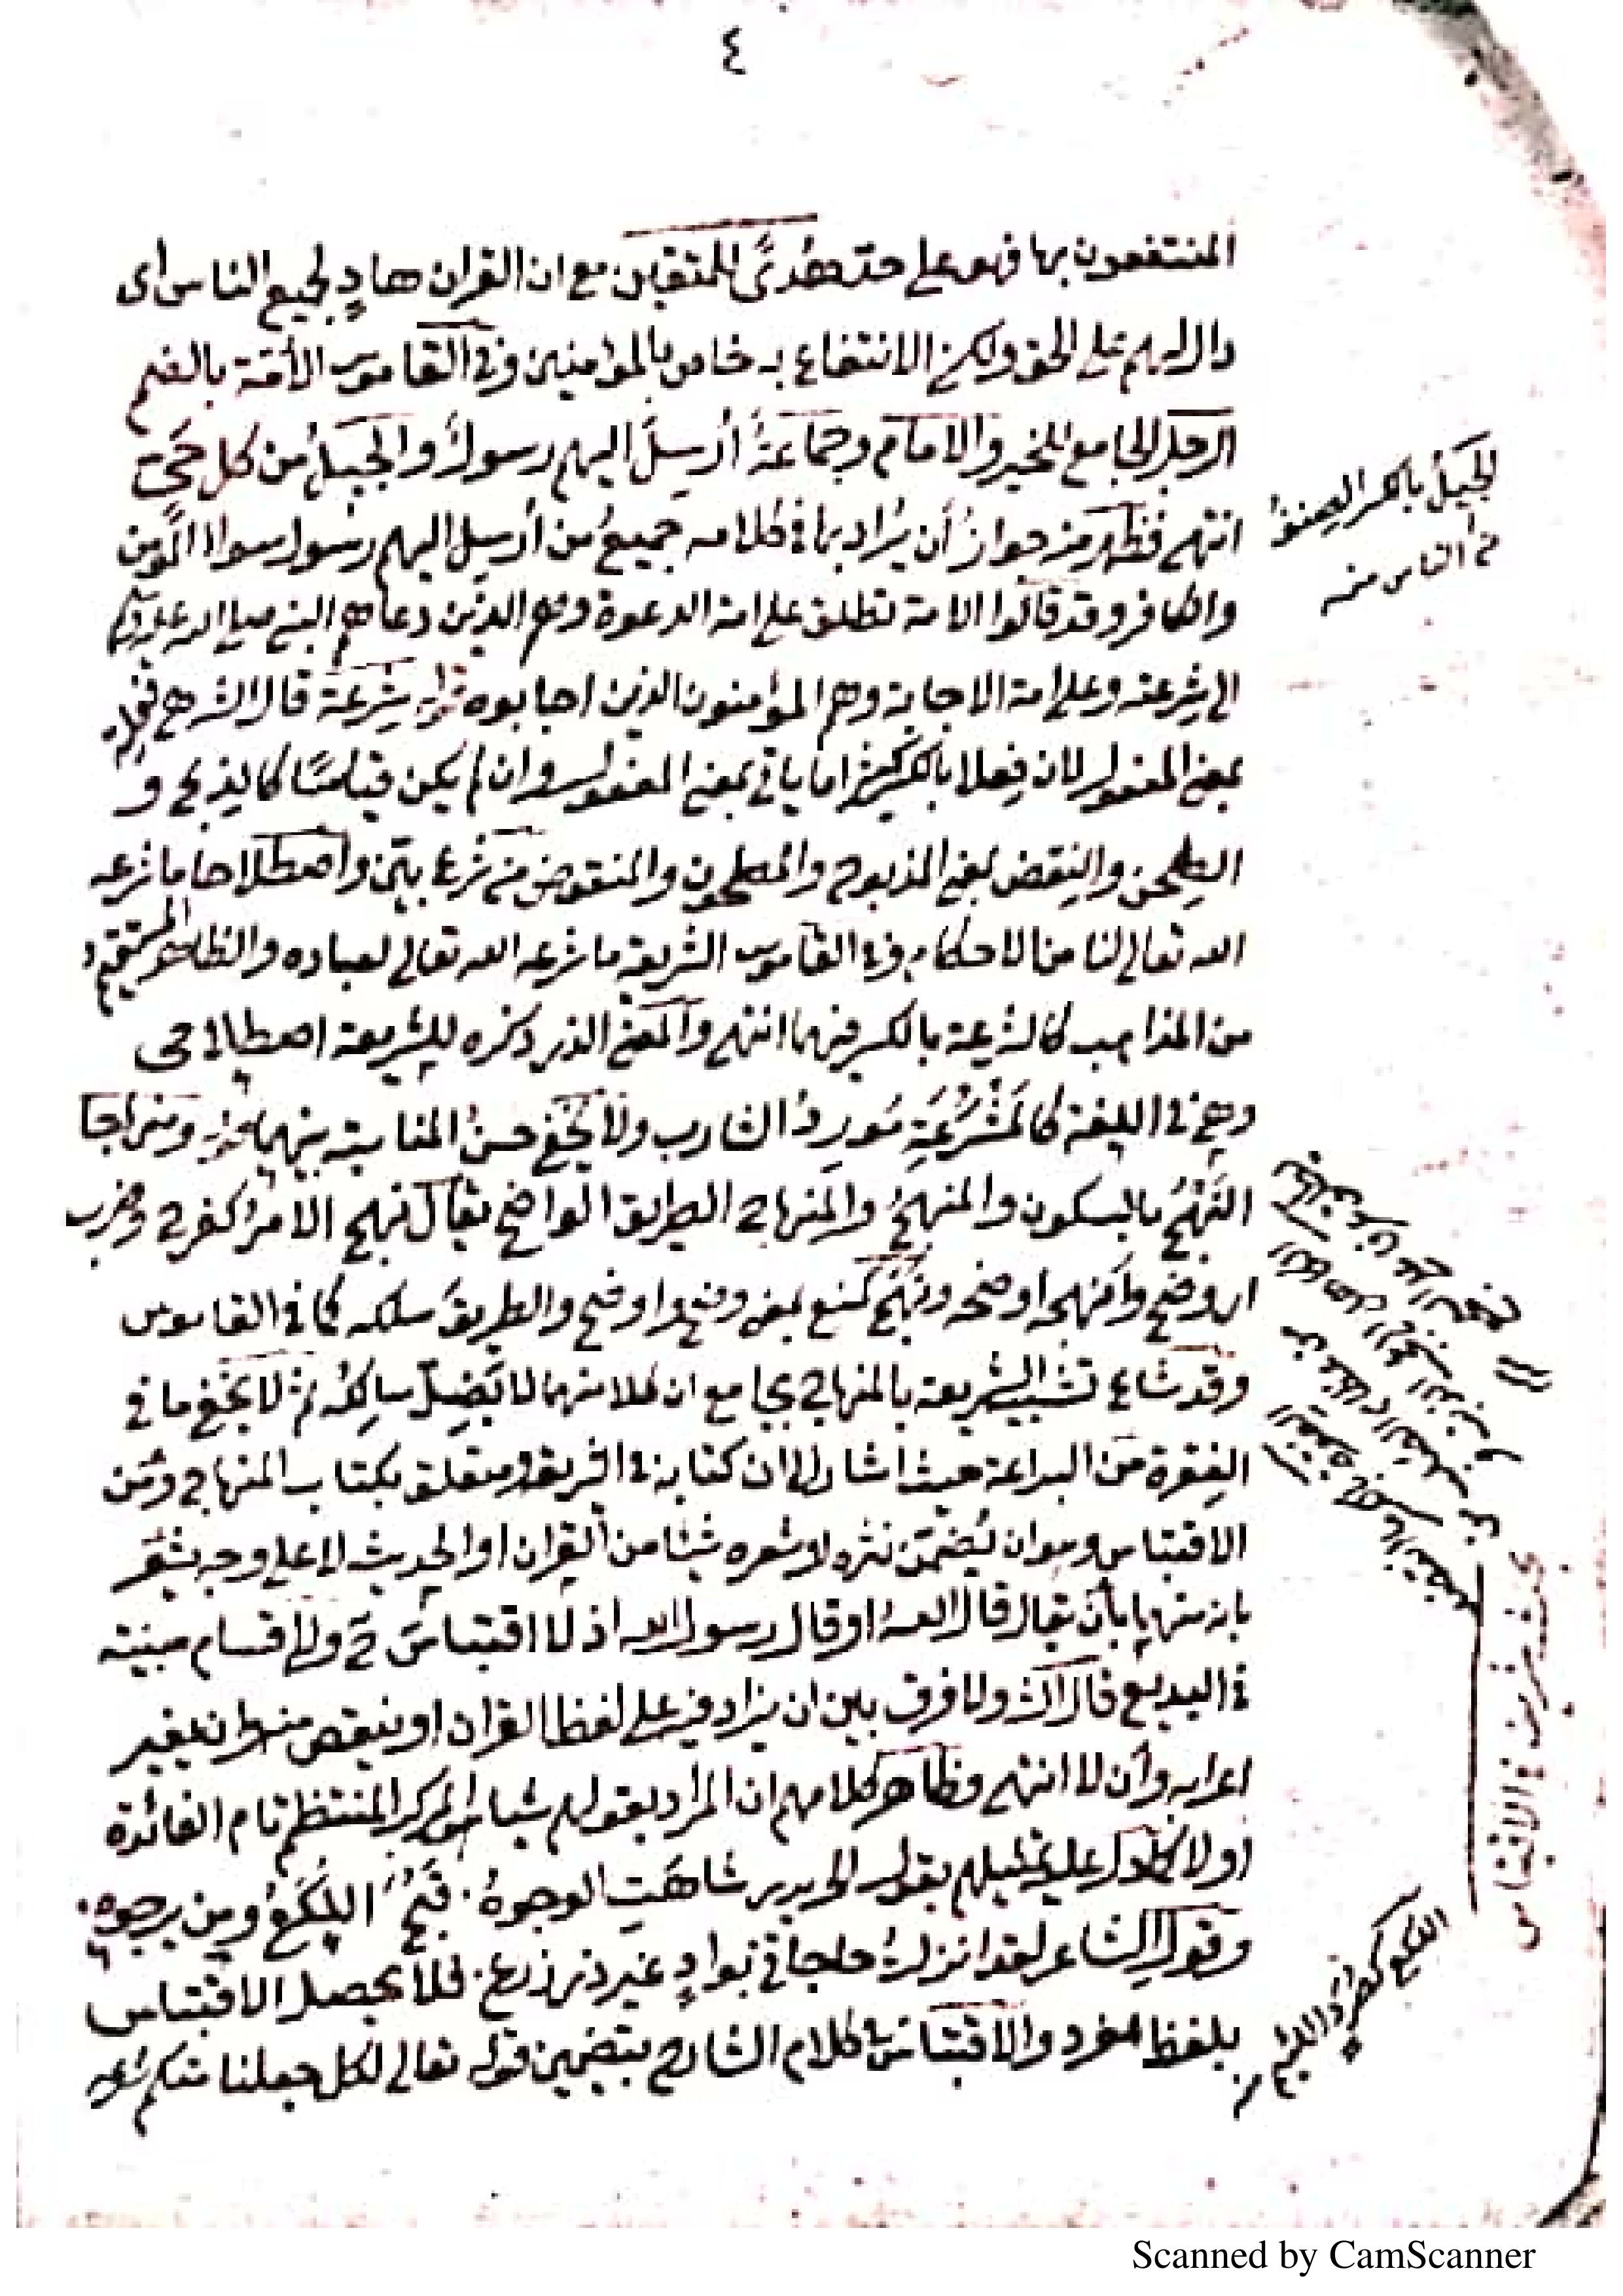 ٤
المنتفعون بها فهو على حد هُدًى للمتقين مع ان القران هادٍ لجميع الناس اى
دال لهم على الحق ولكن الانتفاع به خاص بالمؤمنين وفى القاموس الأمّة بالضم
الرجل الجامع للخير والامام وجماعةٌ أُرسِلَ اليهم رسولٌ والجيلُ من كل حَيٍّ
انتهى فظهر منه جوازُ أن يُراد بها فى كلامه جميعُ من أُرسِل اليهم رسول سواء المؤمن
والكافر وقد قالوا الامة تطلق على امة الدعوة وهم الذين دعاهم النبى صلى الله عليه وسلم
الى شرعته وعلى امة الاجابة وهم المؤمنون الذين اجابوه قوله شِرعَةً قال الش هى فِعلة
بمعنى المفعول لان فِعلا بالكسر كثيرا ما ياتى بمعنى المفعول وان لم يكن قياسًا كالذِبح و
الطِحن والنِقض بمعنى المذبوح والمطحون والمنقوض من شرع بيّن واصطلاحا ما شرعه
الله تعالى لنا من الاحكام وفى القاموس الشريعة ما شرعه الله تعالى لعباده والظاهر المستقيم
من المذاهب كالشِرعة بالكسر فيهما انتهى والمعنى الذى ذكره للشريعة اصطلاحى
وهى فى اللغة كالمَشْرَعَةِ مَورِدُ الشارب ولا يخفى حسنُ المناسبة بينهما قوله ومنهاجا
النَهْجُ بالسكون والمنهجُ والمنهاج الطريق الواضح يقال نهج الامرُ كفرح وضرب
اى وضح وأنهجه اوضحه ونَهَجَ كمنع بمعنى وضح واوضح والطريقَ سلكه كما فى القاموس
وقد شاع تشبيه الشريعة بالمنهاج بجامع ان كلا منهما لا يَضِلّ سالِكُه ثم لا يخفى ما فى
الفِقرة من البراعة حيث اشار الى ان كتابه فى الشريعة ومتعلق بكتاب المنهاج ومن
الاقتباس وهو ان يُضمّن نثره او شعره شيئا من القران او الحديث لا على وجه يشعر
بانه منهما بأن يقال قال الله او قال رسول الله اذ لا اقتباسَ ح وله اقسام مبينة
فى البديع قال الش ولا فرق بين ان يزاد فيه على لفظ القران او ينقص منه وان يغير
اعرابه وأن لا انتهى وظاهر كلامهم ان المراد بقولهم شيئا المركب المنتظم تام الفائدة
او لا كما دل عليه تمثيلهم بقول الحريرى شاهَتِ الوجوهُ. قَبُحَ اللُكَعُ ومن يرجوه.
وقول الشاعر لقد انزلتُ حاجاتى بوادٍ غير ذى زرع. فلا يحصل الاقتباس
بلفظ مفرد والاقتباس فى كلام الشارح بتضمين قوله تعالى لكل جعلنا منكم شرعة
الجيلُ بالكسر الصنفُ
من الناس منه
تعريف الاقتباس
اللكع كصُرَد اللئيم
Scanned by CamScanner